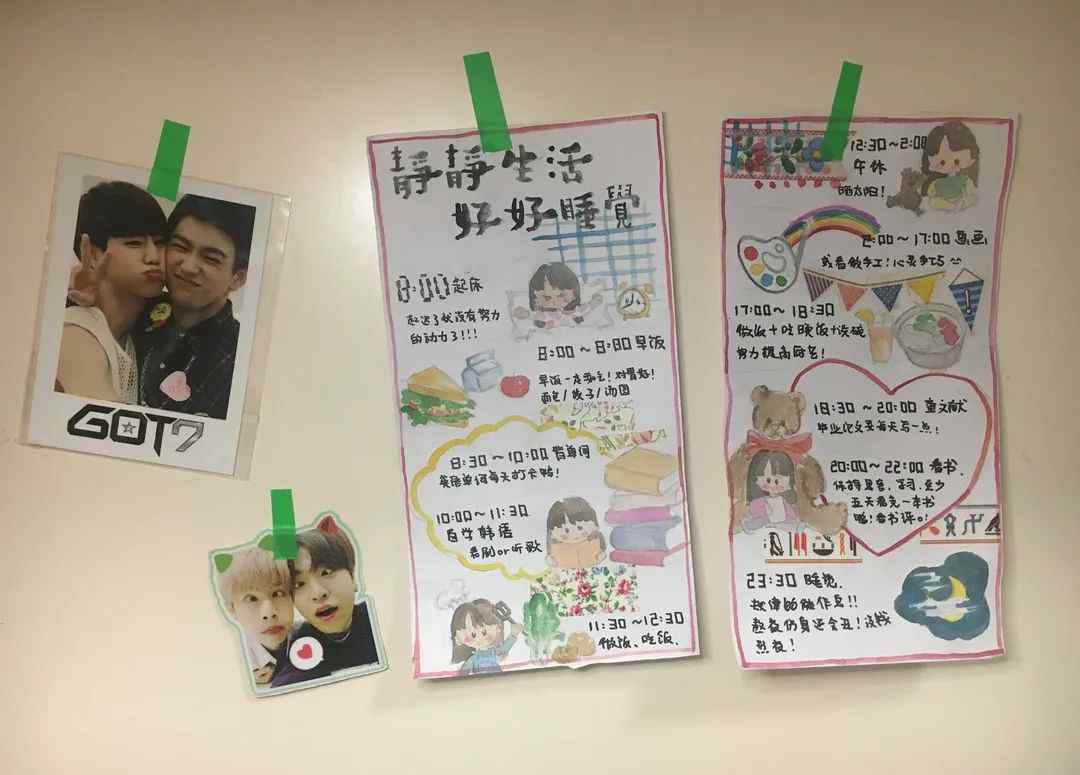 GOT7
靜靜生活
好好睡覺
8:00起床
起迟了就没有努力
的动力了!!!
8:00～8:30早饭
早饭一定要吃!对胃好!
面包/饺子/汤圆
8:30～10:00背单词
英语单词每天打卡鸭!
10:00～11:30
自学韩语
看剧or听歌
11:30～12:30
做饭、吃饭.
12:30～2:00
午休
晒太阳!
2:00～17:00画画
或者做手工!
17:00～18:30
做饭+吃晚饭+洗碗
努力提高厨艺!
18:30～20:00查文献
毕业论文要每天写一点!
20:00～22:00看书.
五天看完一本书
嗯!要书评o!
23:30睡觉.
规律的作息!!
熬夜伤身还会丑!
熬夜!